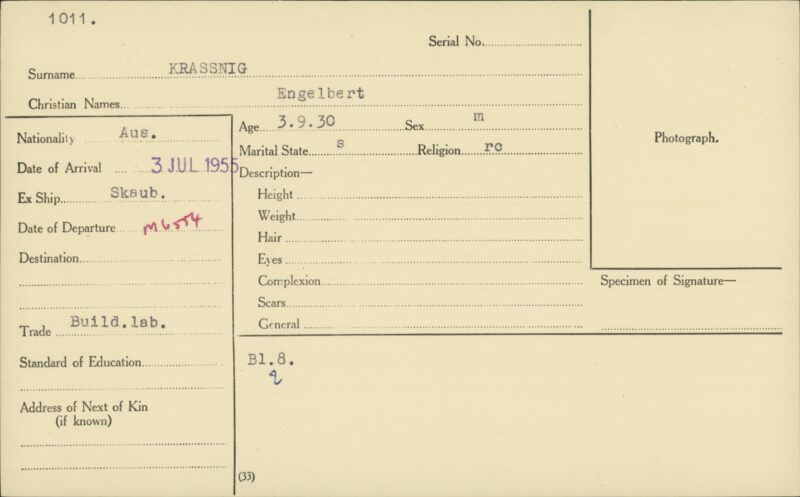 1011.
Serial No.
Surname KRASSNIG
Christian Names Engelbert
Nationality Aus.
Date of Arrival 3 JUL 1955
Ex Ship Skaub.
Date of Departure M6554
Destination
Trade Build.lab.
Standard of Education
Address of Next of Kin
(if known)
Age 3.9.30 Sex m
Marital State s Religion rc
Description—
Height
Weight
Hair
Eyes
Complexion
Scars
General
Bl.8.
2
(33)
Photograph.
Specimen of Signature—